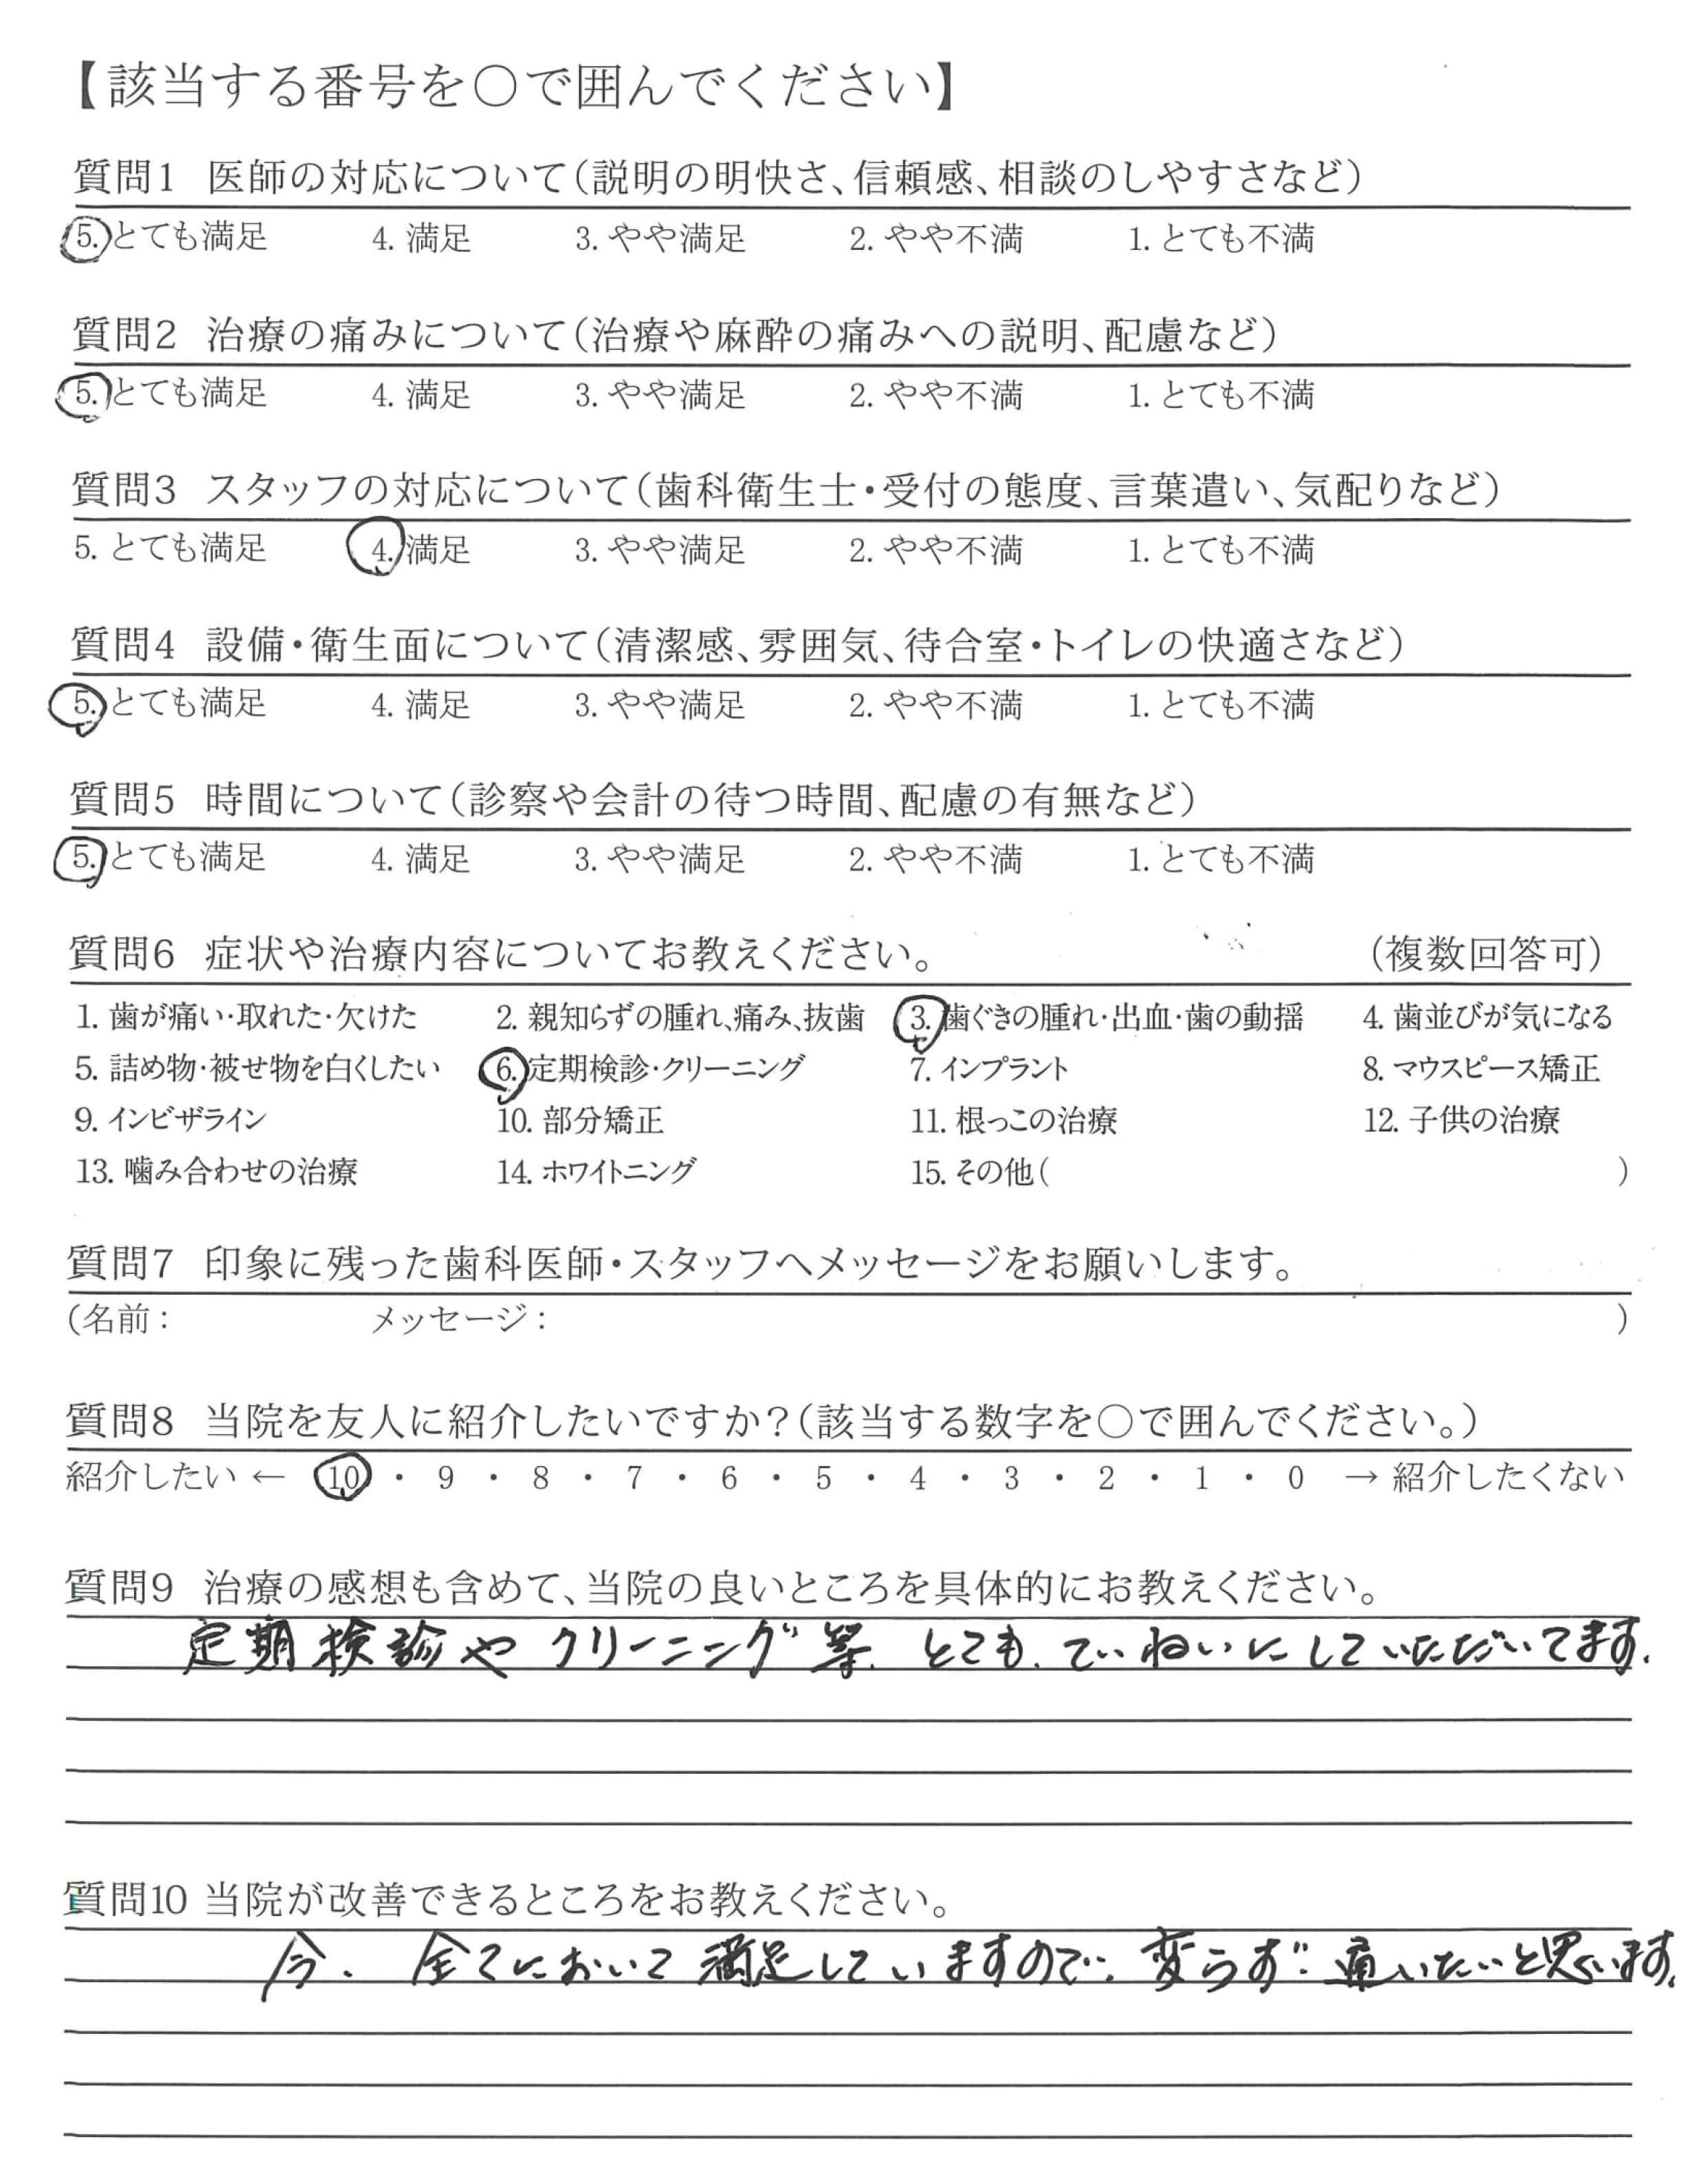 【該当する番号を○で囲んでください】
質問1 医師の対応について(説明の明快さ、信頼感、相談のしやすさなど)
5. とても満足 4. 満足 3. やや満足 2. やや不満 1. とても不満
質問2 治療の痛みについて(治療や麻酔の痛みへの説明、配慮など)
5. とても満足 4. 満足 3. やや満足 2. やや不満 1. とても不満
質問3 スタッフの対応について(歯科衛生士・受付の態度、言葉遣い、気配りなど)
5. とても満足 4. 満足 3. やや満足 2. やや不満 1. とても不満
質問4 設備・衛生面について(清潔感、雰囲気、待合室・トイレの快適さなど)
5. とても満足 4. 満足 3. やや満足 2. やや不満 1. とても不満
質問5 時間について(診察や会計の待つ時間、配慮の有無など)
5. とても満足 4. 満足 3. やや満足 2. やや不満 1. とても不満
質問6 症状や治療内容についてお教えください。 (複数回答可)
1. 歯が痛い・取れた・欠けた 2. 親知らずの腫れ、痛み、抜歯 3. 歯ぐきの腫れ・出血・歯の動揺 4. 歯並びが気になる
5. 詰め物・被せ物を白くしたい 6. 定期検診・クリーニング 7. インプラント 8. マウスピース矯正
9. インビザライン 10. 部分矯正 11. 根っこの治療 12. 子供の治療
13. 噛み合わせの治療 14. ホワイトニング 15. その他( )
質問7 印象に残った歯科医師・スタッフへメッセージをお願いします。
(名前: メッセージ: )
質問8 当院を友人に紹介したいですか?(該当する数字を○で囲んでください。)
紹介したい ← 10 ・ 9 ・ 8 ・ 7 ・ 6 ・ 5 ・ 4 ・ 3 ・ 2 ・ 1 ・ 0 → 紹介したくない
質問9 治療の感想も含めて、当院の良いところを具体的にお教えください。
定期検診やクリーニング等、とても、ていねいにしていただいてます。
質問10 当院が改善できるところをお教えください。
今、全てにおいて満足していますので、変らず通いたいと思います。